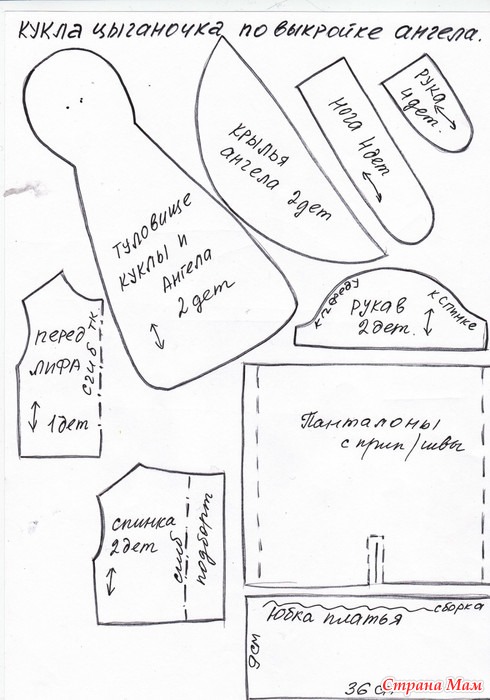 кукла цыганочка по выкройке ангела.
рука
4дет.
нога 4дет
крылья
ангела 2дет
туловище
куклы и
Ангела
2 дет
к переду
к спинке
рукав
2дет.
перед
лифа
1дет
сгиб тк
Панталоны
с прип/швы
спинка
2дет
сгиб
подборт
сборка
Юбка платья
9см
36 см
Страна Мам